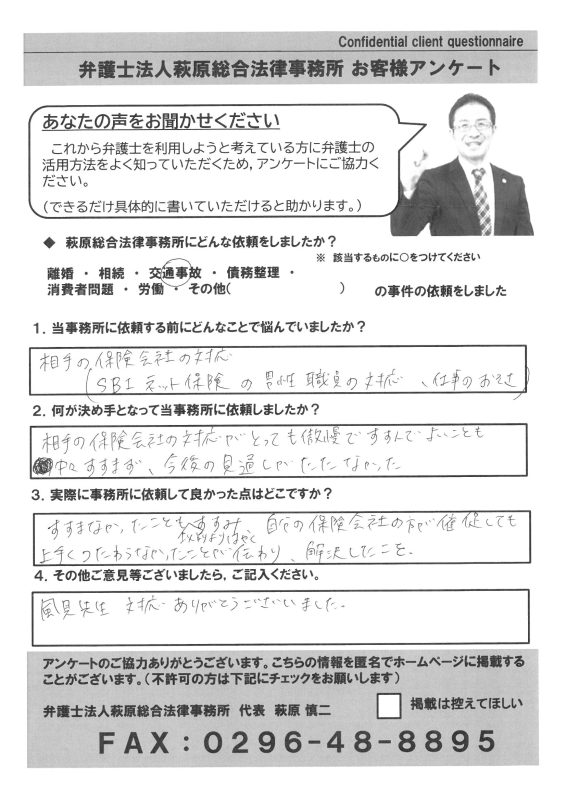 Confidential client questionnaire
弁護士法人萩原総合法律事務所 お客様アンケート
あなたの声をお聞かせください
これから弁護士を利用しようと考えている方に弁護士の
活用方法をよく知っていただくため，アンケートにご協力く
ださい。
（できるだけ具体的に書いていただけると助かります。）
◆ 萩原総合法律事務所にどんな依頼をしましたか？
※ 該当するものに○をつけてください
離婚 ・ 相続 ・ 交通事故 ・ 債務整理 ・
消費者問題 ・ 労働 ・ その他( ) の事件の依頼をしました
1．当事務所に依頼する前にどんなことで悩んでいましたか？
相手の保険会社の対応
(SBIネット保険の男性職員の対応、仕事のおそさ)
2．何が決め手となって当事務所に依頼しましたか？
相手の保険会社の対応がとっても傲慢ですすんでよいことも
中々すすまず、今後の見通しがたたなかった
3．実際に事務所に依頼して良かった点はどこですか？
すすまなかったこともすすみ、自分の保険会社の方が催促しても
上手くつたわらなかったことが伝わり、解決したこと。
4．その他ご意見等ございましたら，ご記入ください。
風見先生 対応ありがとうございました。
アンケートのご協力ありがとうございます。こちらの情報を匿名でホームページに掲載する
ことがございます。（不許可の方は下記にチェックをお願いします）
弁護士法人萩原総合法律事務所 代表 萩原 慎二
掲載は控えてほしい
FAX：0296-48-8895